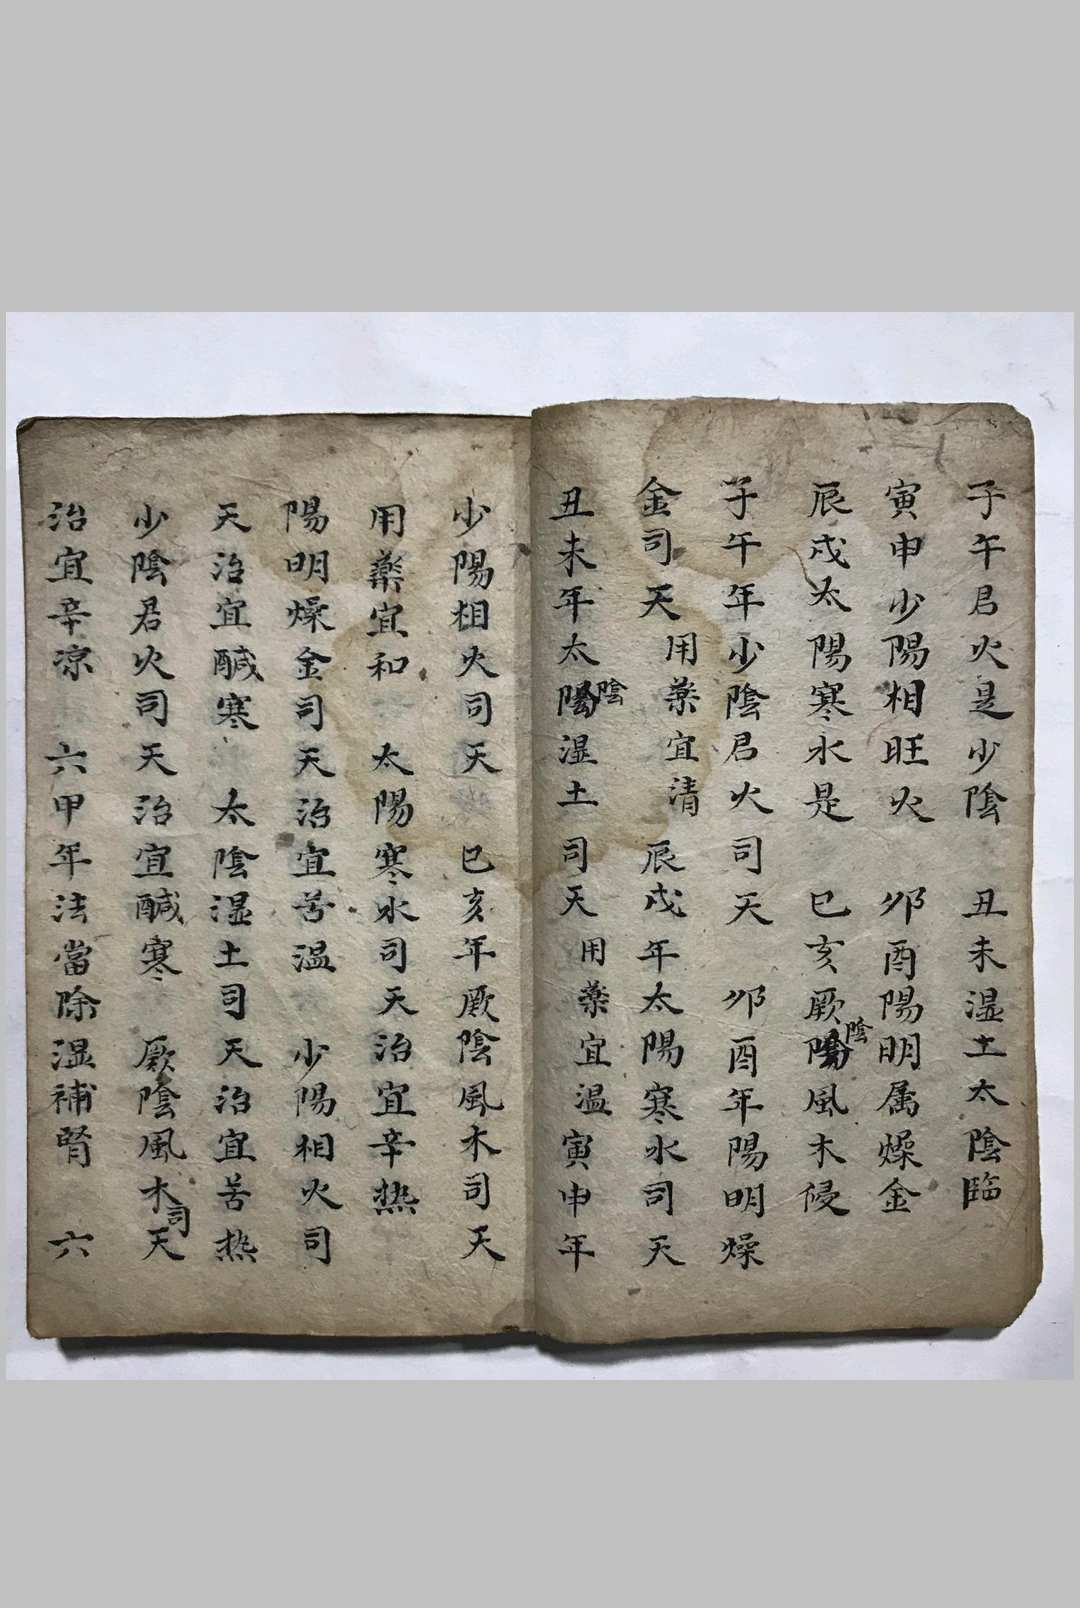 子午君火是少陰　丑未湿土太陰臨
寅申少陽相旺火　卯酉陽明属燥金
辰戌太陽寒水是　巳亥厥陰風木侵
子午年少陰君火司天　卯酉年陽明燥
金司天　用藥宜清　辰戌年太陽寒水司天
丑未年太陰湿土司天　用藥宜温寅申年
少陽相火司天　巳亥年厥陰風木司天
用藥宜和　太陽寒水司天治宜辛热
陽明燥金司天治宜苦温　少陽相火司
天治宜鹹寒　太陰湿土司天治宜苦热
少陰君火司天治宜鹹寒　厥陰風木司天
治宜辛凉　六甲年法當除湿補腎　六